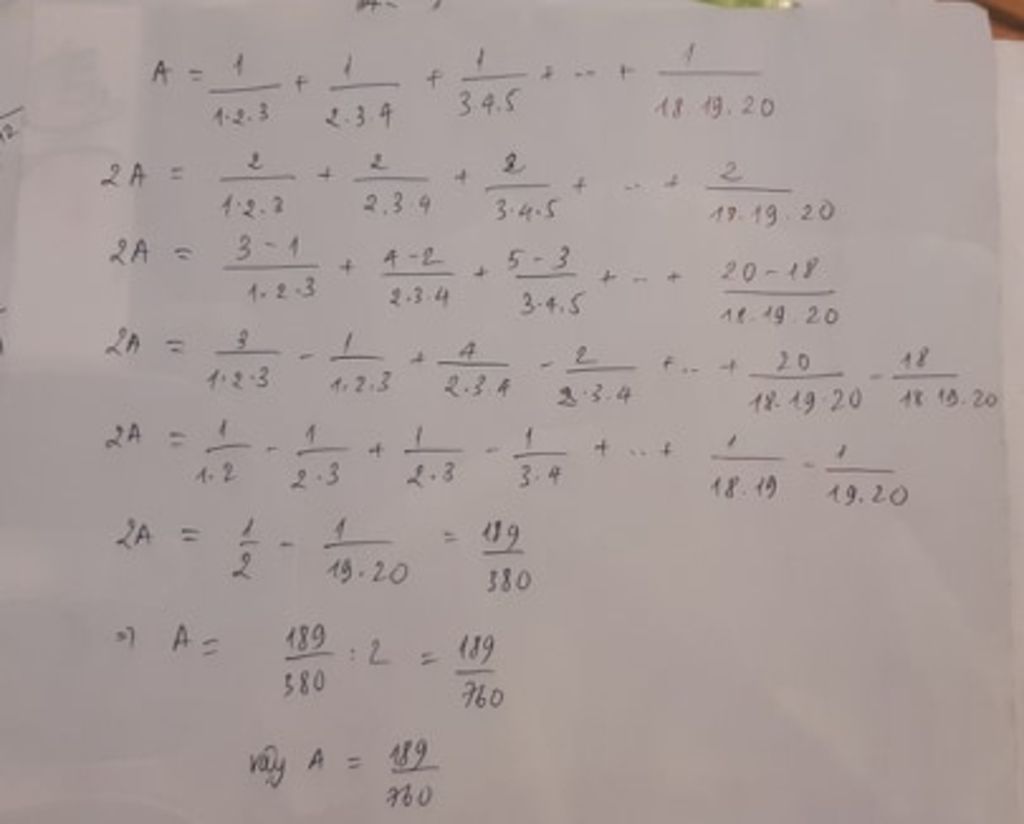 A = 1/1·2·3 + 1/2·3·4 + 1/3·4·5 + ... + 1/18·19·20
2A = 2/1·2·3 + 2/2·3·4 + 2/3·4·5 + ... + 2/18·19·20
2A = 3-1/1·2·3 + 4-2/2·3·4 + 5-3/3·4·5 + ... + 20-18/18·19·20
2A = 3/1·2·3 - 1/1·2·3 + 4/2·3·4 - 2/2·3·4 + ... + 20/18·19·20 - 18/18·19·20
2A = 1/1·2 - 1/2·3 + 1/2·3 - 1/3·4 + ... + 1/18·19 - 1/19·20
2A = 1/2 - 1/19·20 = 189/380
⇒ A = 189/380 : 2 = 189/760
vậy A = 189/760